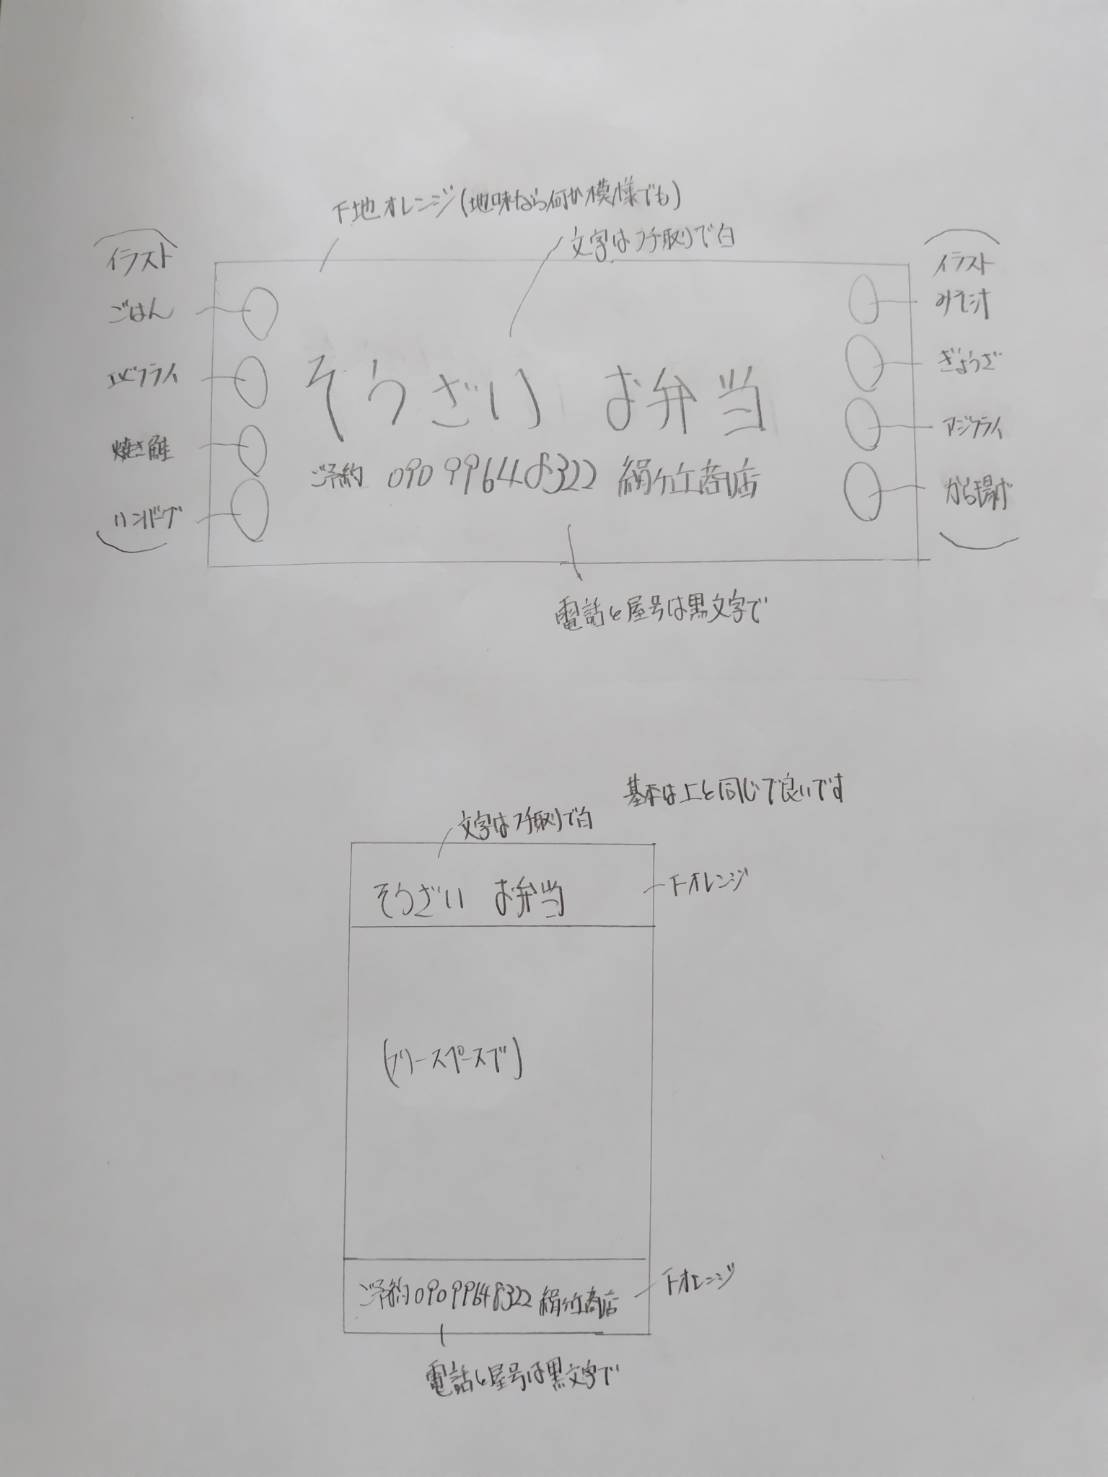 下地オレンジ(地味なら何か模様でも)
文字はフチ取りで白
イラスト
ごはん
エビフライ
焼き鮭
ハンバーグ
そうざい お弁当
ご予約 090 9964 8322 絹ヶ丘商店
イラスト
みそ汁
ぎょうざ
アジフライ
から揚げ
電話と屋号は黒文字で
基本は上と同じで良いです
文字はフチ取りで白
そうざい お弁当
下オレンジ
(フリースペースで)
ご予約 090 9964 8322 絹ヶ丘商店
下オレンジ
電話と屋号は黒文字で